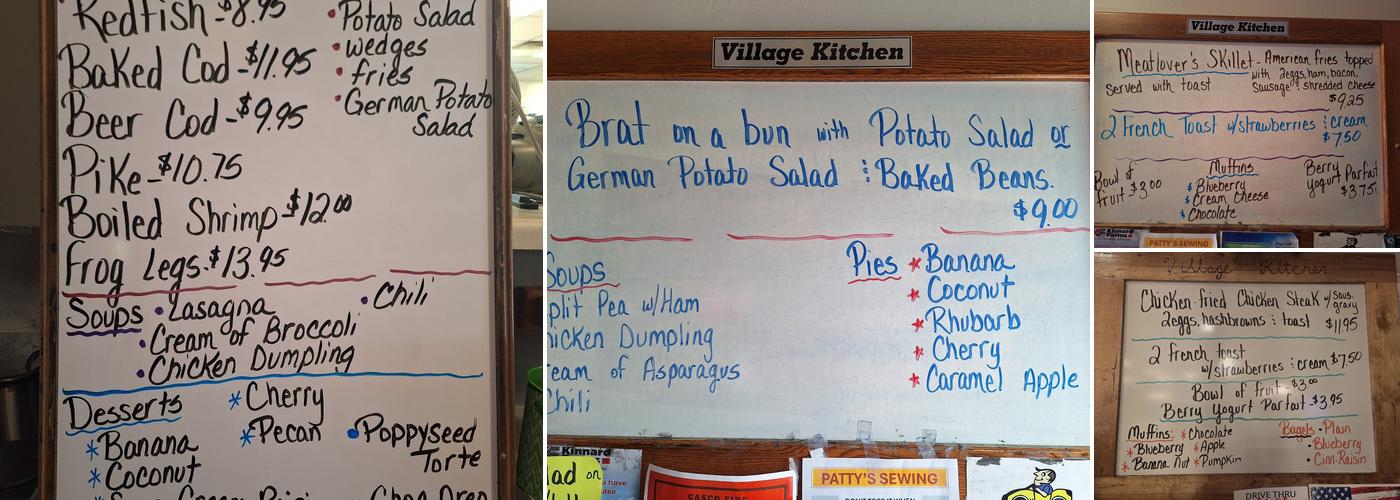 Redfish - $8.95
Baked Cod - $11.95
Beer Cod - $9.95
Pike - $10.75
Boiled Shrimp $12.00
Frog Legs - $13.95
• Potato Salad
• wedges
• fries
• German Potato
Salad
Soups • Lasagna
• Chili
• Cream of Broccoli
• Chicken Dumpling
Desserts
* Cherry
* Pecan
• Poppyseed
Torte
* Banana
* Coconut
Village Kitchen
Brat on a bun with Potato Salad or
German Potato Salad & Baked Beans.
$9.00
Soups
Split Pea w/Ham
Chicken Dumpling
Cream of Asparagus
Chili
Pies * Banana
* Coconut
* Rhubarb
* Cherry
* Caramel Apple
Kinnard
ad on
PATTY'S SEWING
Village Kitchen
Meatlover's Skillet - American fries topped
with 2eggs, ham, bacon,
served with toast
Sausage & shredded cheese
$9.25
2 French Toast w/strawberries & cream
$7.50
Bowl of
fruit $3.00
Muffins
* Blueberry
* Cream Cheese
* Chocolate
Berry
Yogurt Parfait
$3.75
Kinnard
Farms
PATTY'S SEWING
Village Kitchen
Chicken-fried Chicken Steak w/saus.
gravy
2eggs, hashbrowns & toast $11.95
2 french toast
w/strawberries & cream $7.50
Bowl of fruit - $3.00
Berry Yogurt Parfait - $3.95
Muffins: * Chocolate
* Blueberry * Apple
* Banana Nut * Pumpkin
Bagels • Plain
• Blueberry
• Cinn-Raisin
DRIVE THRU